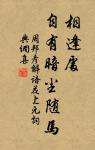 相逢處
自有暗尘随馬
周邦彦解语花上元詞
典網集